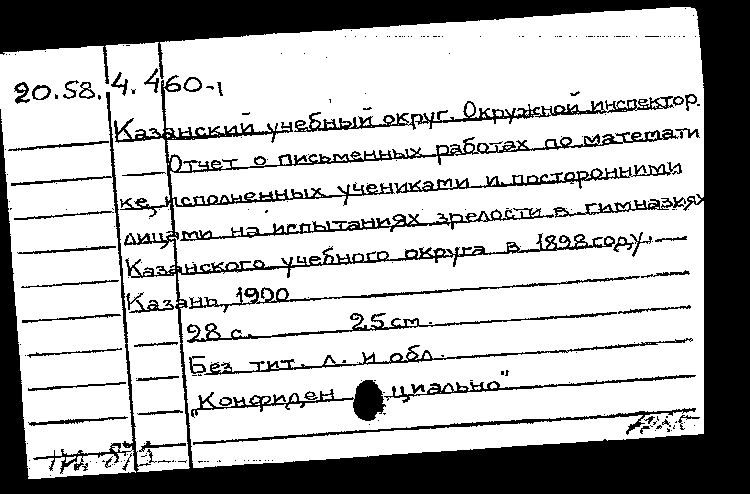 20.58.4.460-1
Казанский учебный округ. Окружной инспектор.
Отчет о письменных работах по математи
ке, исполненных учениками и посторонними
лицами на испытаниях зрелости в гимназиях
Казанского учебного округа в 1898 году.
Казань, 1900
28 с. 25 см.
Без тит. л. и обл.
"Конфиденциально"